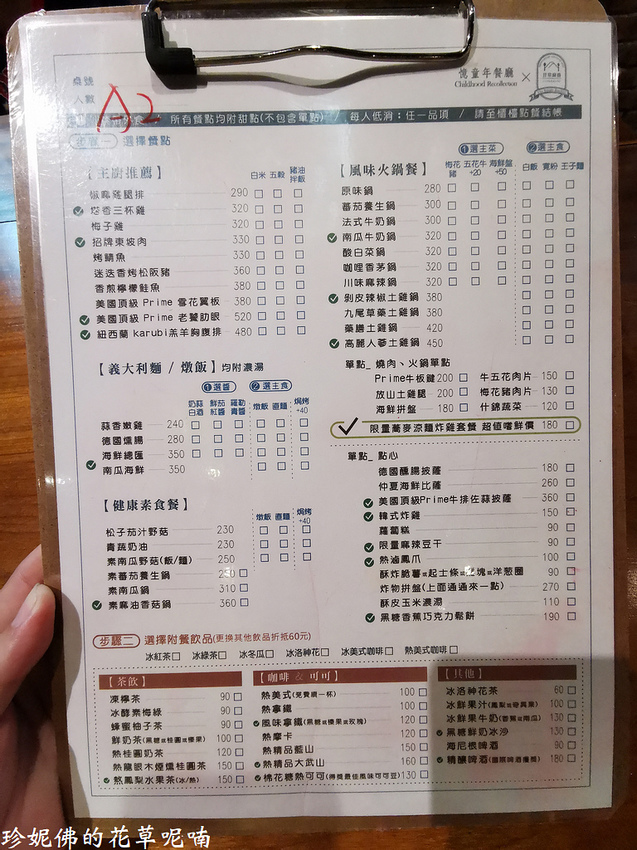 桌號
人數
A2
憶童年餐廳
Childhood Recollection
×
所有餐點均附甜點(不包含單點) 每人低消:任一品項 / 請至櫃檯點餐結帳
步驟一 選擇餐點
【主廚推薦】 白米 五穀 豬油拌飯
椒麻雞腿排 290
塔香三杯雞 320
梅子雞 320
招牌東坡肉 330
烤鯖魚 330
迷迭香烤松阪豬 360
香煎檸檬鮭魚 380
美國頂級 Prime 雪花翼板 380
美國頂級 Prime 老饕肋眼 520
紐西蘭 karubi羔羊胸腹排 480
【義大利麵 / 燉飯】均附濃湯
①選醬 ②選主食
奶蒜白酒 鮮茄紅醬 羅勒青醬 燉飯 直麵 焗烤+40
蒜香嫩雞 240
德國燻腸 280
海鮮總匯 350
南瓜海鮮 350
【健康素食餐】 燉飯 直麵 焗烤+40
松子茄汁野菇 230
青蔬奶油 230
素南瓜野菇(飯/麵) 250
素蕃茄養生鍋 230
素南瓜鍋 310
素麻油香菇鍋 360
【風味火鍋餐】
①選主菜 ②選主食
梅花豬 五花牛+20 海鮮盤+50 白飯 寬粉 王子麵
原味鍋 280
蕃茄養生鍋 300
法式牛奶鍋 300
南瓜牛奶鍋 320
酸白菜鍋 320
咖哩香茅鍋 320
川味麻辣鍋 320
剝皮辣椒土雞鍋 380
九尾草藥土雞鍋 380
藥膳土雞鍋 420
高麗人蔘土雞鍋 450
單點_燒肉、火鍋單點
Prime牛板腱 200 牛五花肉片 150
放山土雞腿 200 梅花豬肉片 130
海鮮拼盤 180 什錦蔬菜 120
限量蕎麥涼麵炸雞套餐 超值嚐鮮價 180
單點_點心
德國醺腸披薩 180
仲夏海鮮比薩 260
美國頂級Prime牛排佐蒜披薩 360
韓式炸雞 150
蘿蔔糕 90
限量麻辣豆干 90
熱滷鳳爪 100
酥炸脆薯或起士條或雞塊或洋蔥圈 90
炸物拼盤(上面通通來一點) 270
酥皮玉米濃湯 110
黑糖香蕉巧克力鬆餅 190
步驟二 選擇附餐飲品(更換其他飲品折抵60元)
冰紅茶 冰綠茶 冰冬瓜 冰洛神花 冰美式咖啡 熱美式咖啡
【茶飲】
凍檸茶 90
冰酵素梅綠 90
蜂蜜柚子茶 90
鮮奶茶(黑糖或桂圓或榛果) 100
熱桂圓奶茶 120
熱龍眼木煙燻桂圓茶 150
熬鳳梨水果茶(冰/熱) 150
【咖啡 & 可可】
熱美式(免費續一杯) 100
熱拿鐵 100
風味拿鐵(黑糖或榛果或玫瑰) 120
熱摩卡 120
熱精品藍山 150
熱精品大武山 160
棉花糖熱可可(得獎最佳風味可可豆) 130
【其他】
冰洛神花茶 60
冰鮮果汁(鳳梨或奇異果) 100
冰鮮果牛奶(香蕉或南瓜) 130
黑糖鮮奶冰沙 130
海尼根啤酒 90
精釀啤酒(國際啤酒獲獎) 180
珍妮佛的花草呢喃